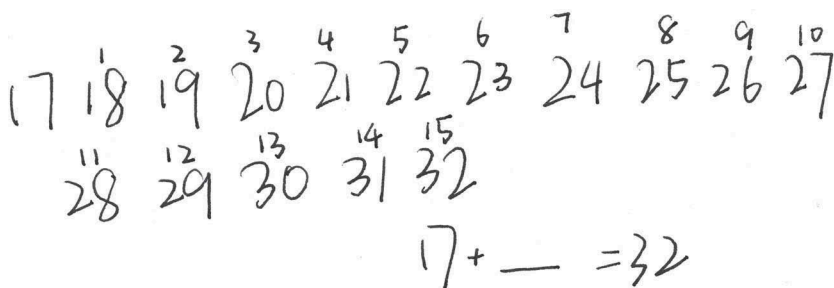 1 2 3 4 5 6 7 8 9 10
17 18 19 20 21 22 23 24 25 26 27
11 12 13 14 15
28 29 30 31 32
17 + __ = 32